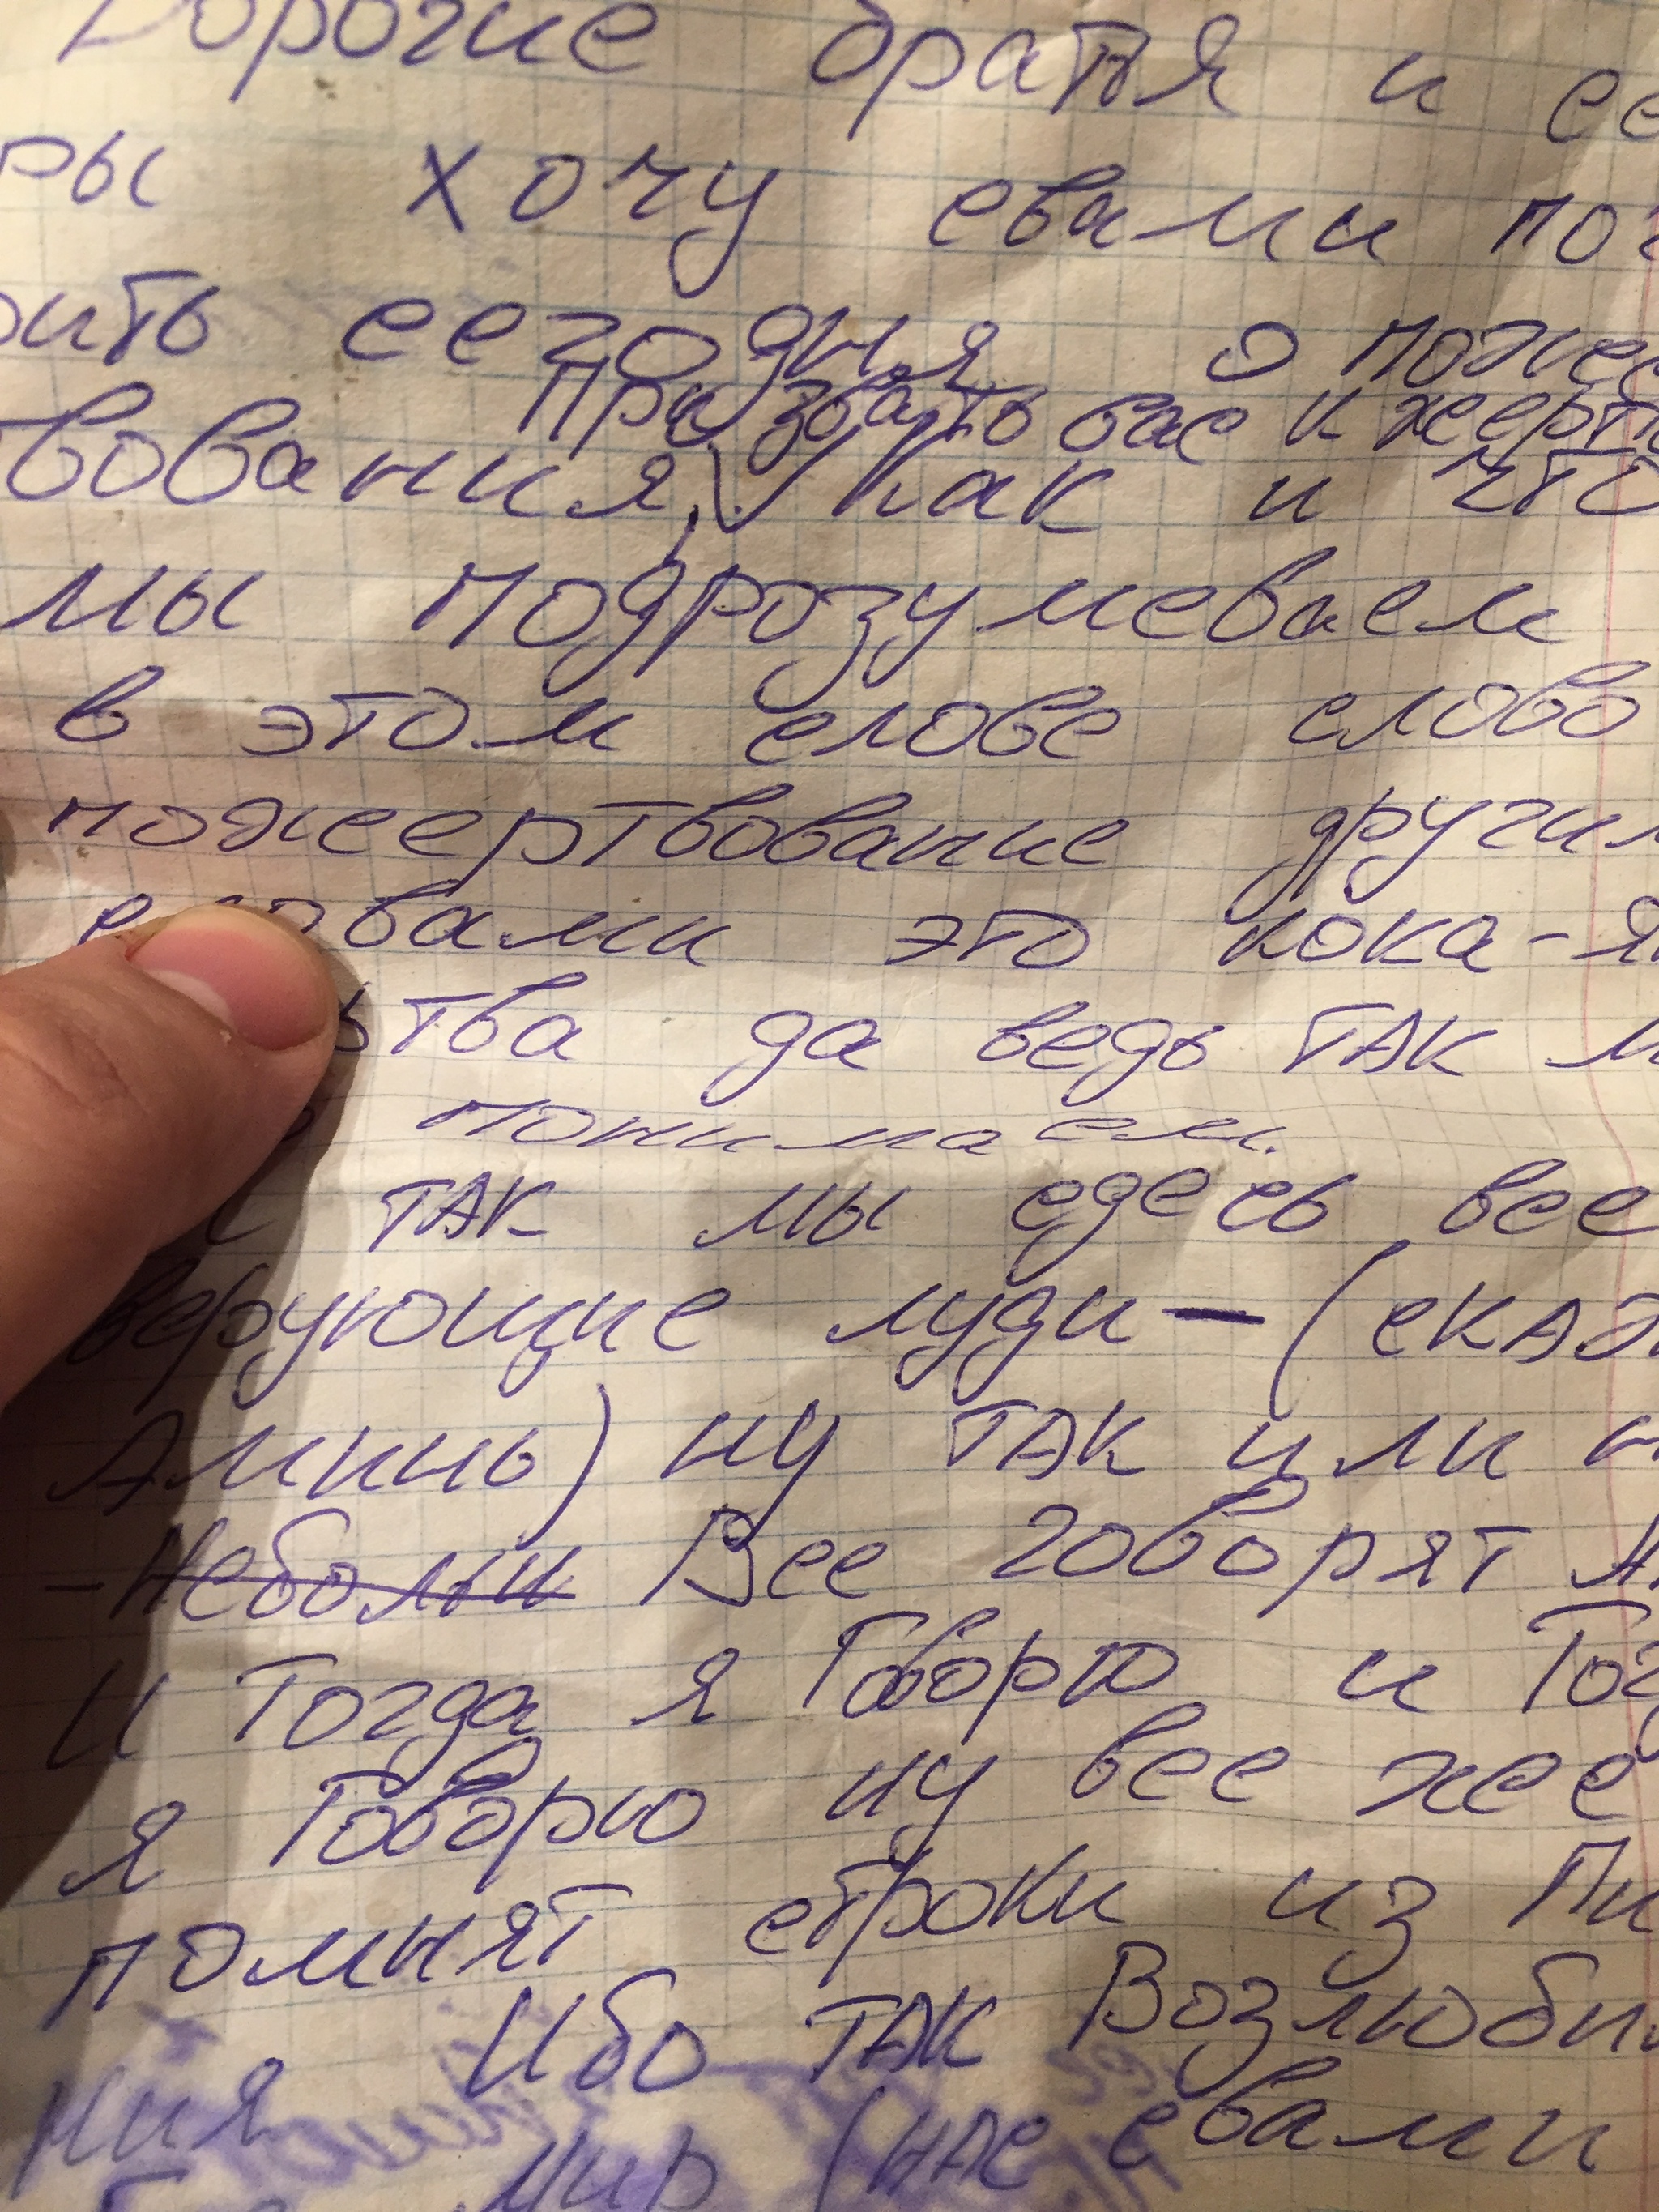 Дорогие братя и се
ры хочу свами пог
рить сегодня о пожер
Призвать вас к жертв
твования, V как и что
мы подрозумеваем
в этом слове слово
пожертвование другим
словами это кока-я
ьтва да ведь ТАК м
понимаем.
ТАК мы сдесь все
верующие луди – (скаж
Аминь) ну ТАК или н
-Неболыи Все говорят
и Тогда я Говорю и Тог
я Говорю ну все же
помнят строки из Пи
ния Ибо ТАК Возлюби
мир (НАС свами